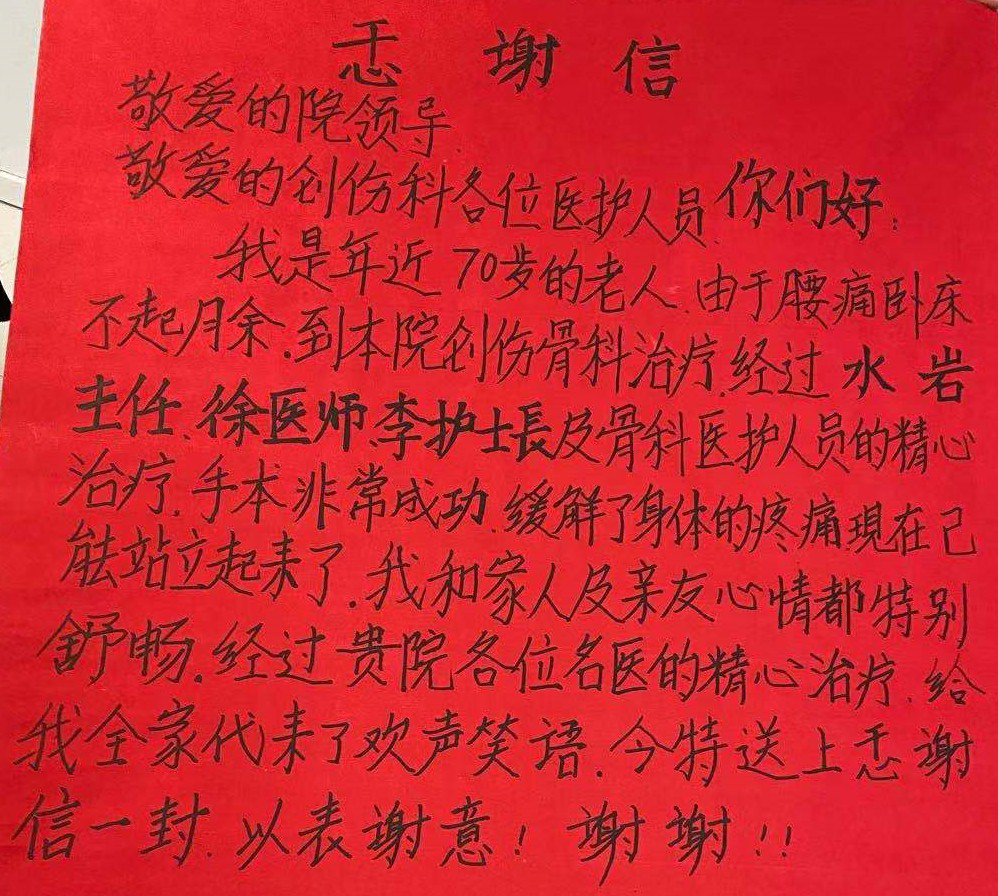 忎谢信
敬爱的院领导.
敬爱的创伤科各位医护人员.你们好:
我是年近70岁的老人.由于腰痛卧床
不起月余.到本院创伤骨科治疗.经过水岩
主任.徐医师.李护士長及骨科医护人员的精心
治疗.手本非常成功.缓解了身体的疼痛.現在己
能站立起来了.我和家人及亲友心情都特别
舒畅.经过贵院各位名医的精心治疗.给
我全家代来了欢声笑语.今特送上忎谢
信一封.以表谢意!谢谢!!